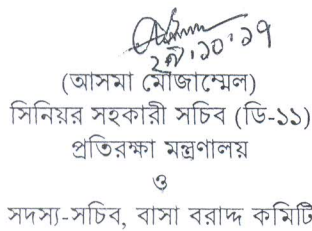 ২৫.১০.১৭
(আসমা মোজাম্মেল)
সিনিয়র সহকারী সচিব (ডি-১১)
প্রতিরক্ষা মন্ত্রণালয়
ও
সদস্য-সচিব, বাসা বরাদ্দ কমিটি